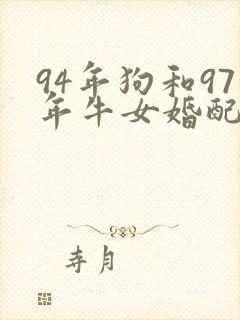 94年狗和97
年牛女婚配
寿月